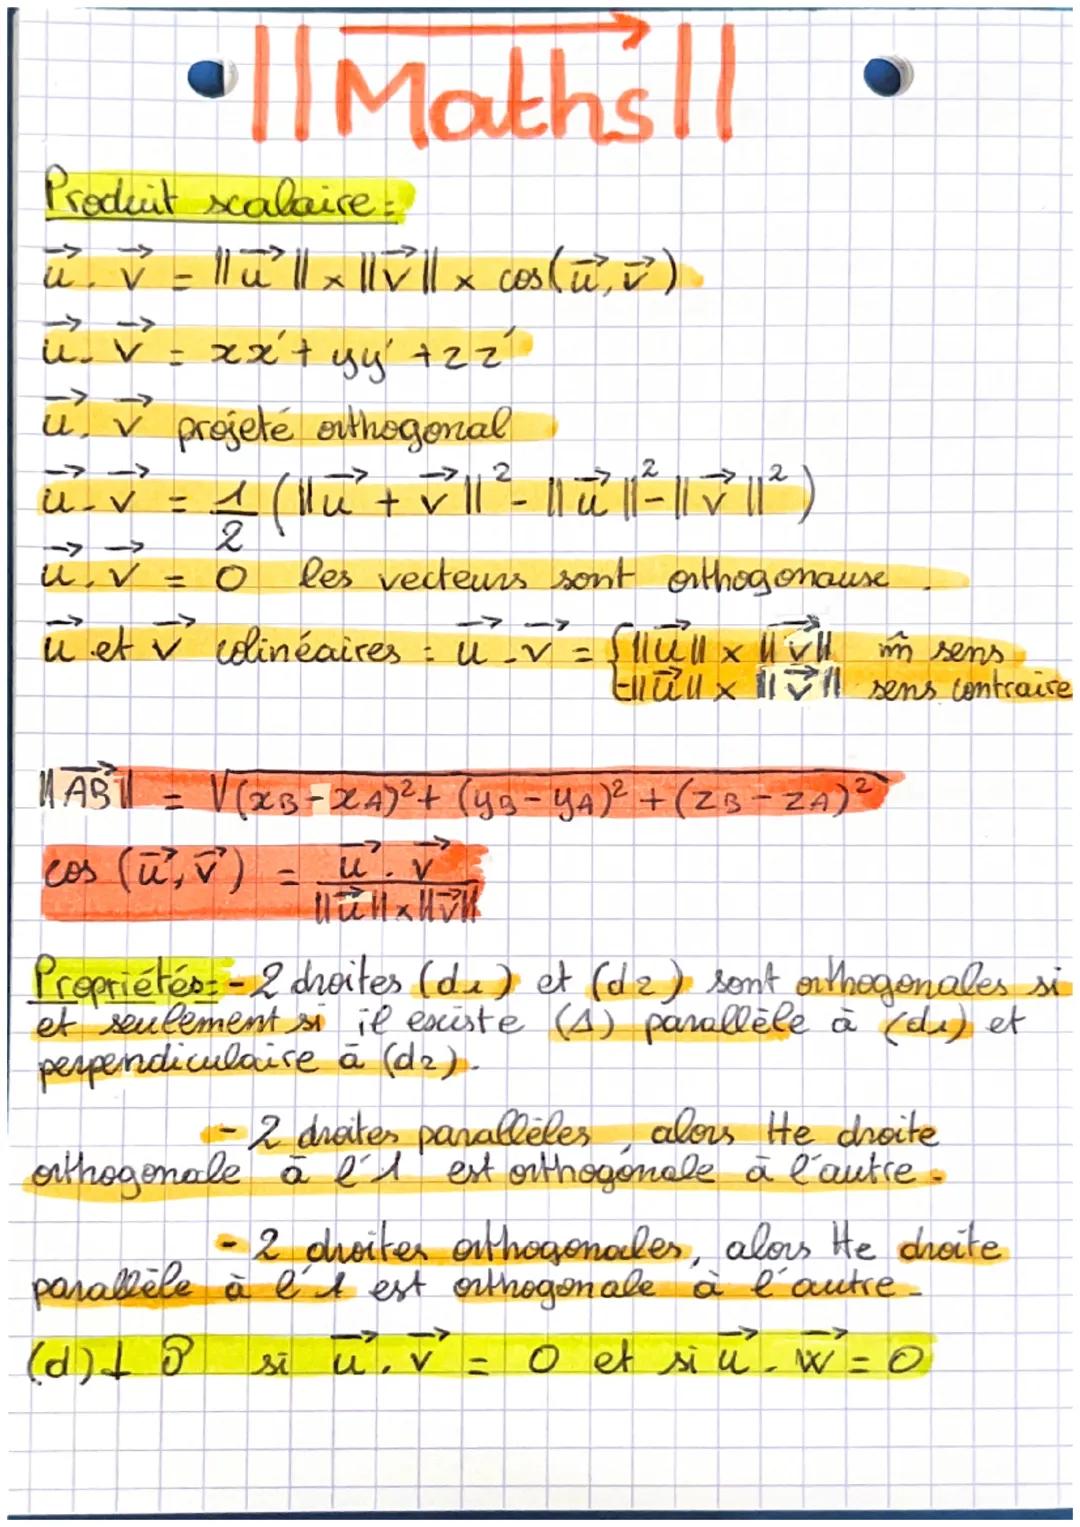 ||Maths||
Produit scalaire :
u⃗ . v⃗ = ||u⃗|| × ||v⃗|| × cos(u⃗, v⃗)
u⃗ . v⃗ = xx' + yy' + zz'
u⃗ . v⃗ projeté orthogonal
u⃗ . v⃗ = 1/2 (||u⃗ + v⃗||² - ||u⃗||² - ||v⃗||²)
u⃗ . v⃗ = 0 les vecteurs sont orthogonaux .
u⃗ et v⃗ colinéaires : u⃗ . v⃗ = { ||u⃗|| × ||v⃗|| m̂ sens
-||u⃗|| × ||v⃗|| sens contraire
||AB⃗|| = √(xB - xA)² + (yB - yA)² + (zB - zA)²
cos (u⃗, v⃗) = u⃗ . v⃗ / ||u⃗|| × ||v⃗||
Propriétés : - 2 droites (d1) et (d2) sont orthogonales si
et seulement si il existe (Δ) parallèle à (d1) et
perpendiculaire à (d2).
- 2 droites parallèles, alors tte droite
orthogonale à l'1 est orthogonale à l'autre.
- 2 droites orthogonales, alors tte droite
parallèle à l'1 est orthogonale à l'autre.
(d) ⊥ P si u⃗ . v⃗ = 0 et si u⃗ . w⃗ = 0